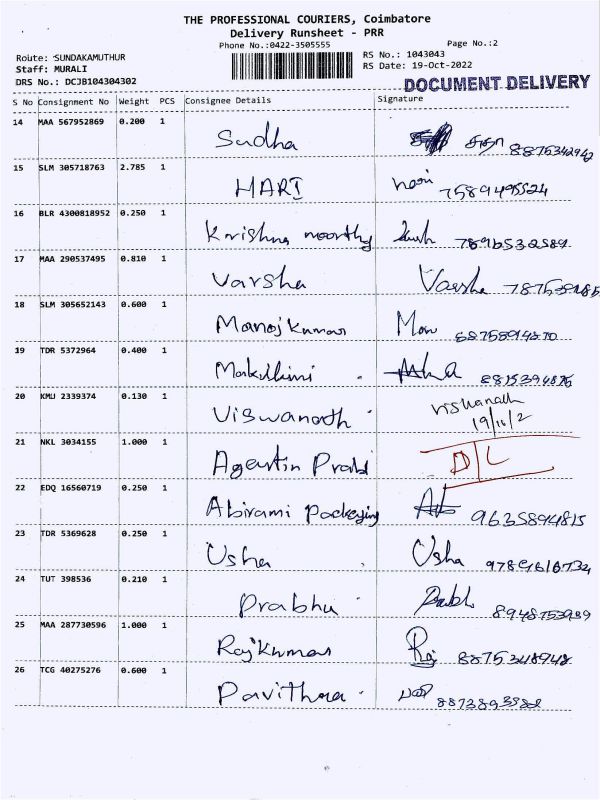 THE PROFESSIONAL COURIERS, Coimbatore
Delivery Runsheet - PRR
Phone No.:0422-3505555 Page No.:2
Route: SUNDAKAMUTHUR RS No.: 1043043
Staff: MURALI RS Date: 19-Oct-2022
DRS No.: DCJB104304302
DOCUMENT DELIVERY
S No Consignment No Weight PCS Consignee Details Signature
14 MAA 567952869 0.200 1 Sudha சுதா 8875342942
15 SLM 305718763 2.785 1 HARI hari
16 BLR 4300818952 0.250 1 Krishna moorthy
17 MAA 290537495 0.810 1 Varsha Varsha
18 SLM 305652143 0.600 1 Manoj Kumar
19 TDR 5372964 0.400 1
20 KMU 2339374 0.130 1 Viswanath
19/10/2
21 NKL 3034155 1.000 1 D/L
22 EDQ 16560719 0.250 1 Abirami 9635894815
23 TDR 5369628 0.250 1 Usha Usha
24 TUT 398536 0.210 1 Prabhu
25 MAA 287730596 1.000 1 Rajkumar Raj 8875348948
26 TCG 40275276 0.600 1 Pavithra